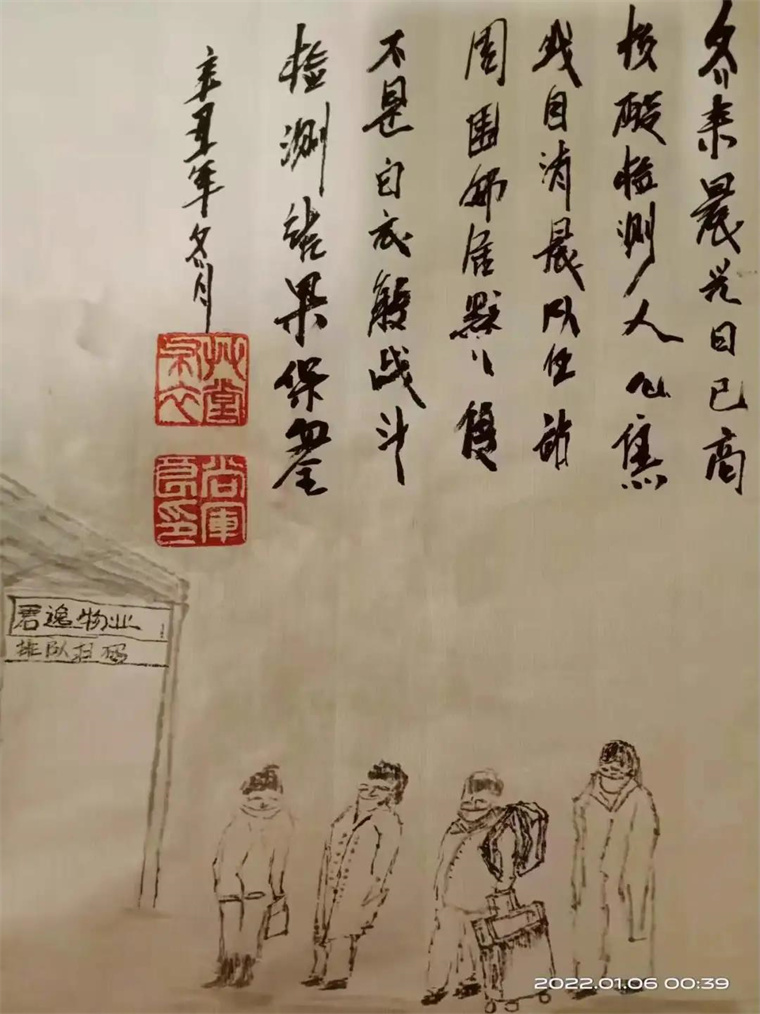 冬来晨光日已高
核酸检测人心焦
我自清晨队伍站
周围邻居默默
不是白衣般战斗
检测结果保安全
辛丑年冬月
尚军良印
君逸物业
排队扫码
2022.01.06 00:39